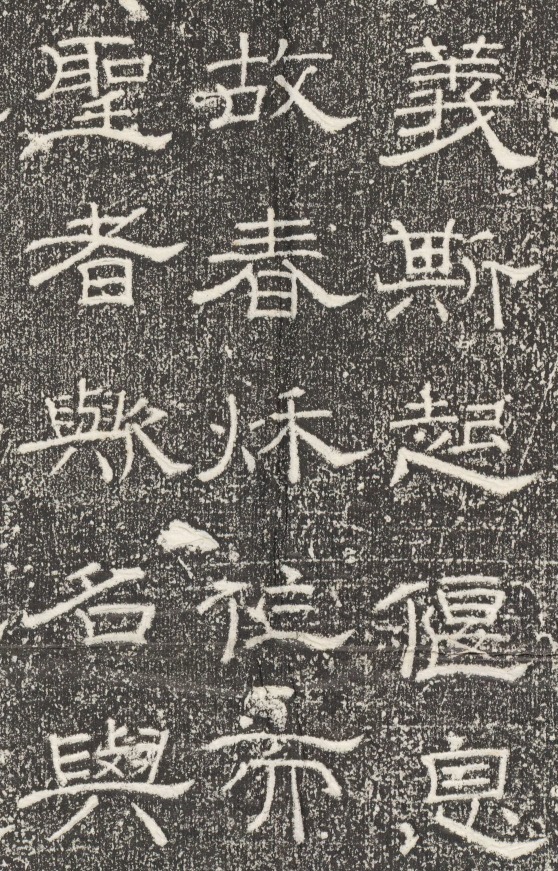 義斯起偃息
故春秌位而
聖者歟名與